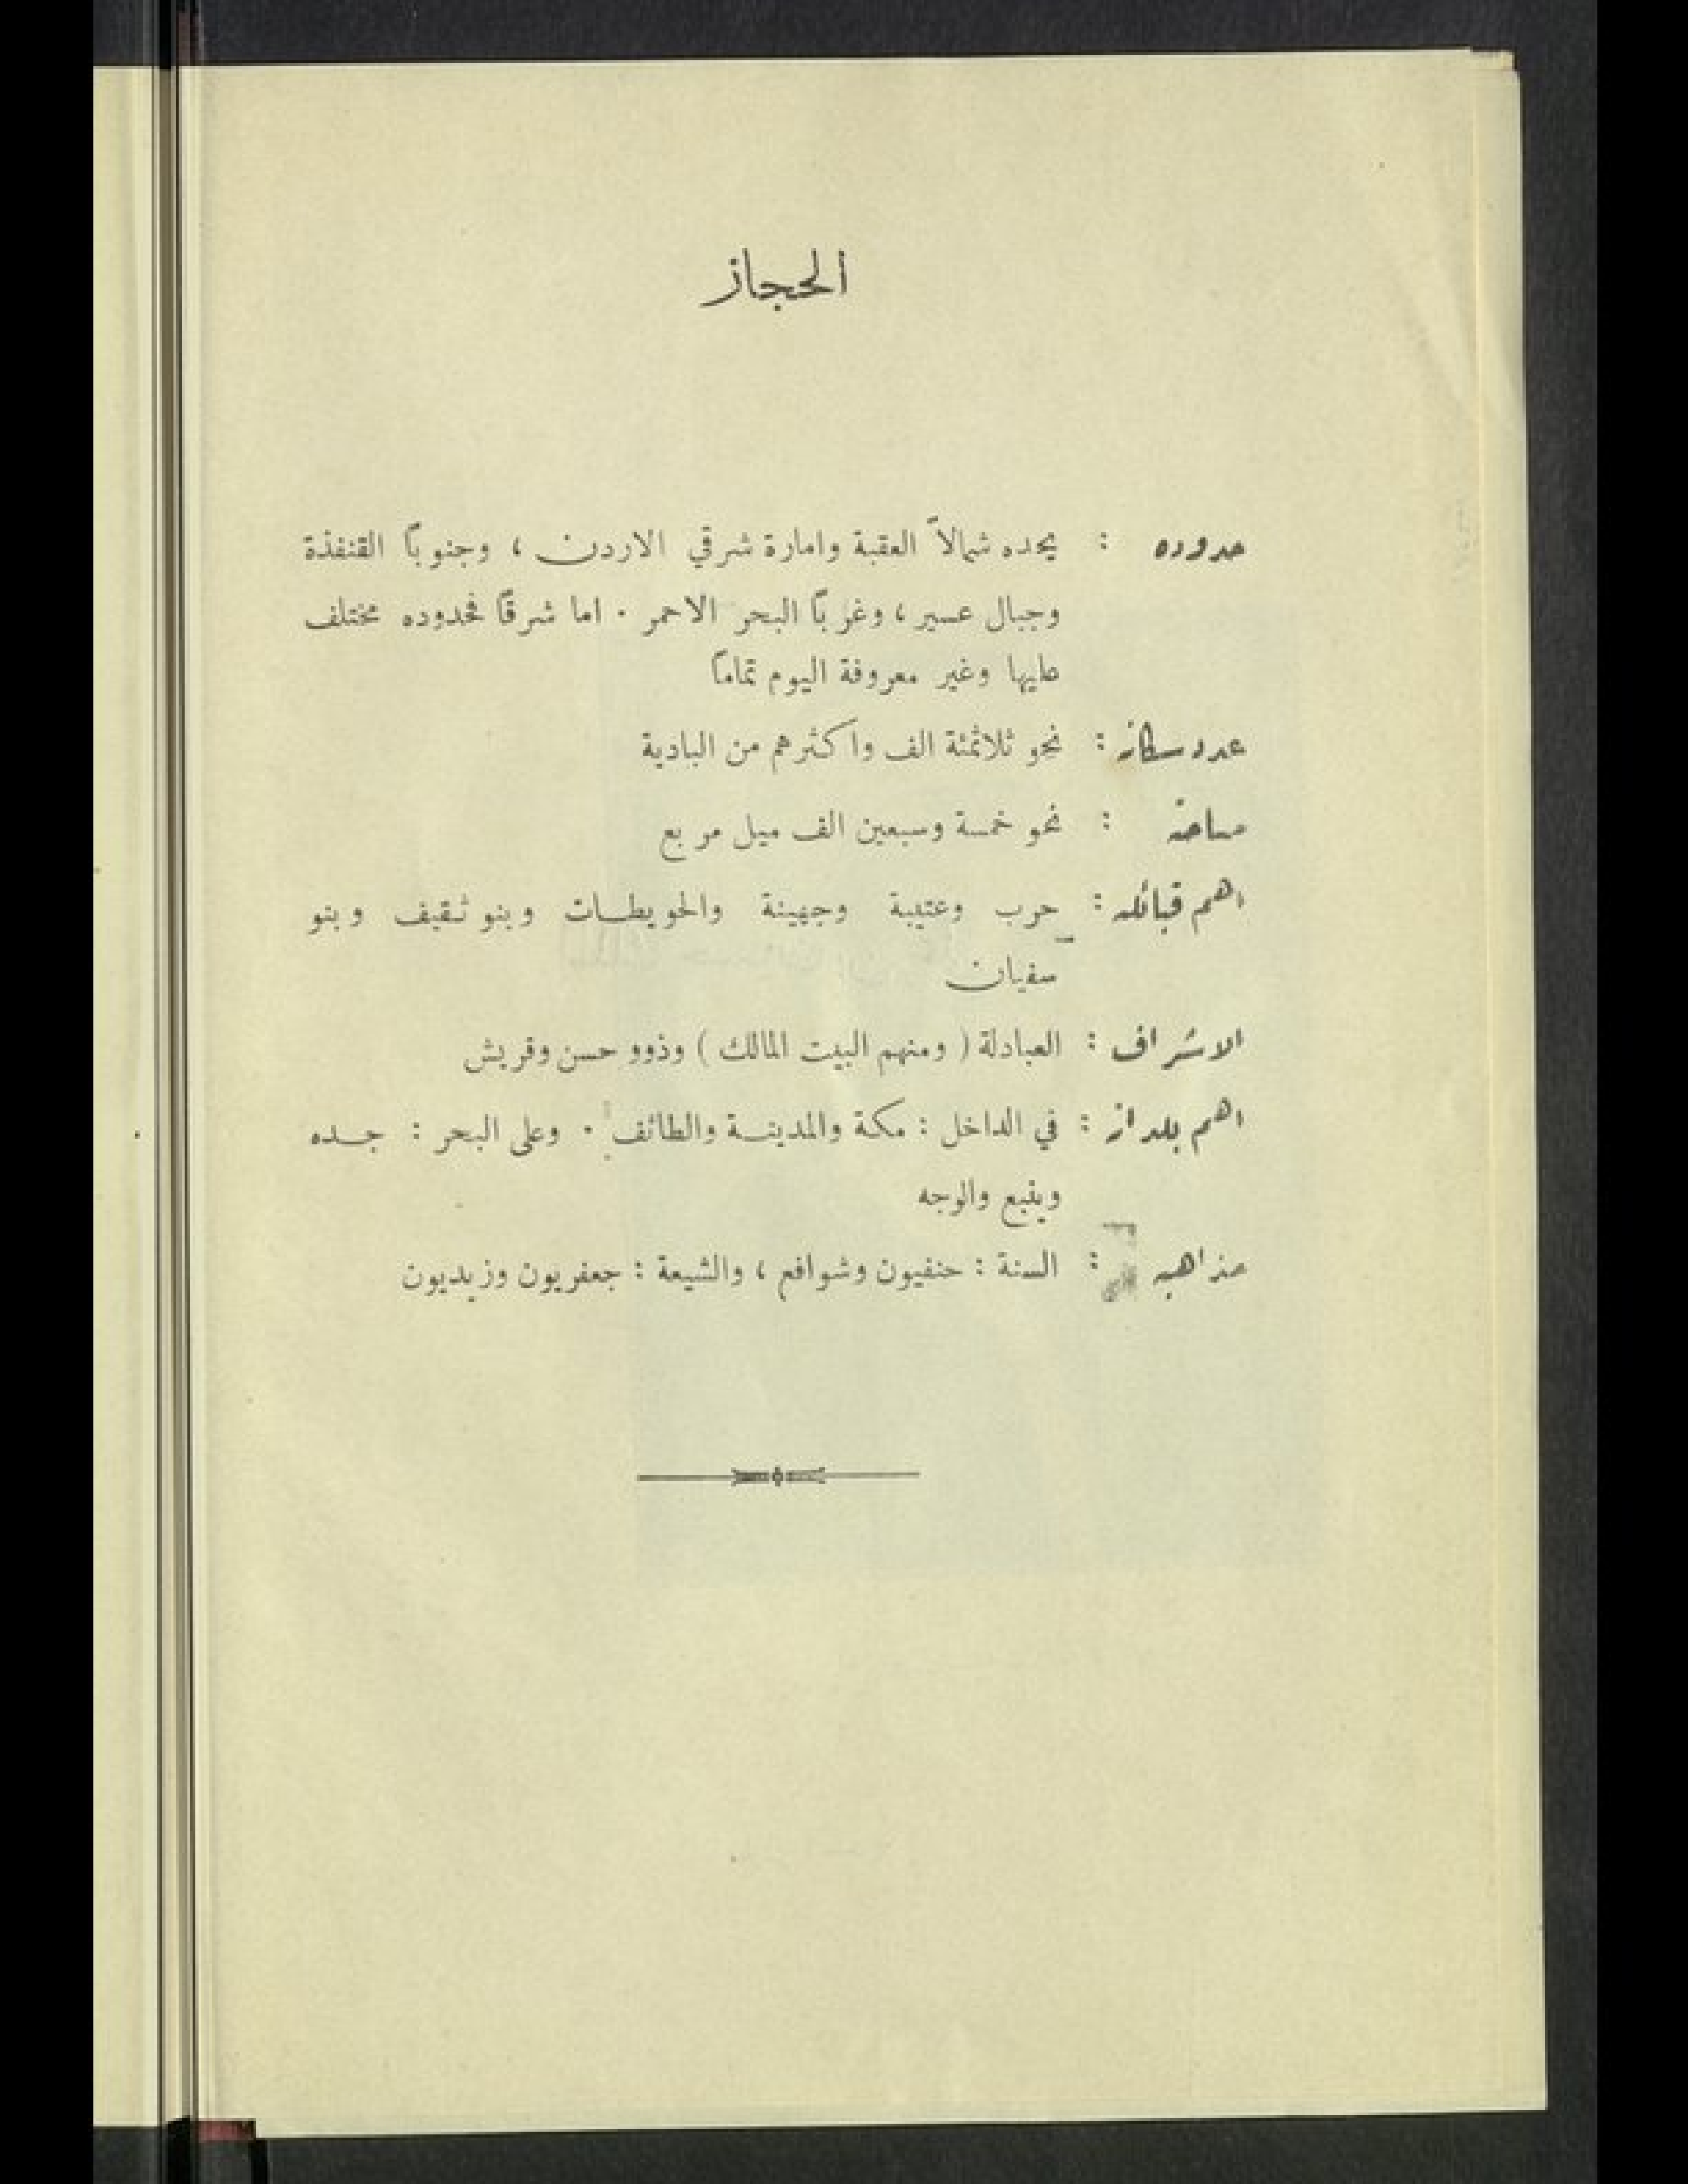 الحجاز
حدوده : يحده شمالاً العقبة وامارة شرقي الاردن ، وجنوباً القنفذة
وجبال عسير ، وغرباً البحر الاحمر . اما شرقاً فحدوده مختلف
عليها وغير معروفة اليوم تماماً
عدد سكانه : نحو ثلاثمئة الف واكثرهم من البادية
مساحته : نحو خمسة وسبعين الف ميل مربع
اهم قبائله : حرب وعتيبة وجهينة والحويطات وبنو ثقيف وبنو
سفيان
الاشراف : العبادلة ( ومنهم البيت المالك ) وذوو حسن وقريش
اهم بلدانه : في الداخل : مكة والمدينة والطائف . وعلى البحر : جده
وينبع والوجه
مذاهبه : السنة : حنفيون وشوافع ، والشيعة : جعفريون وزيديون